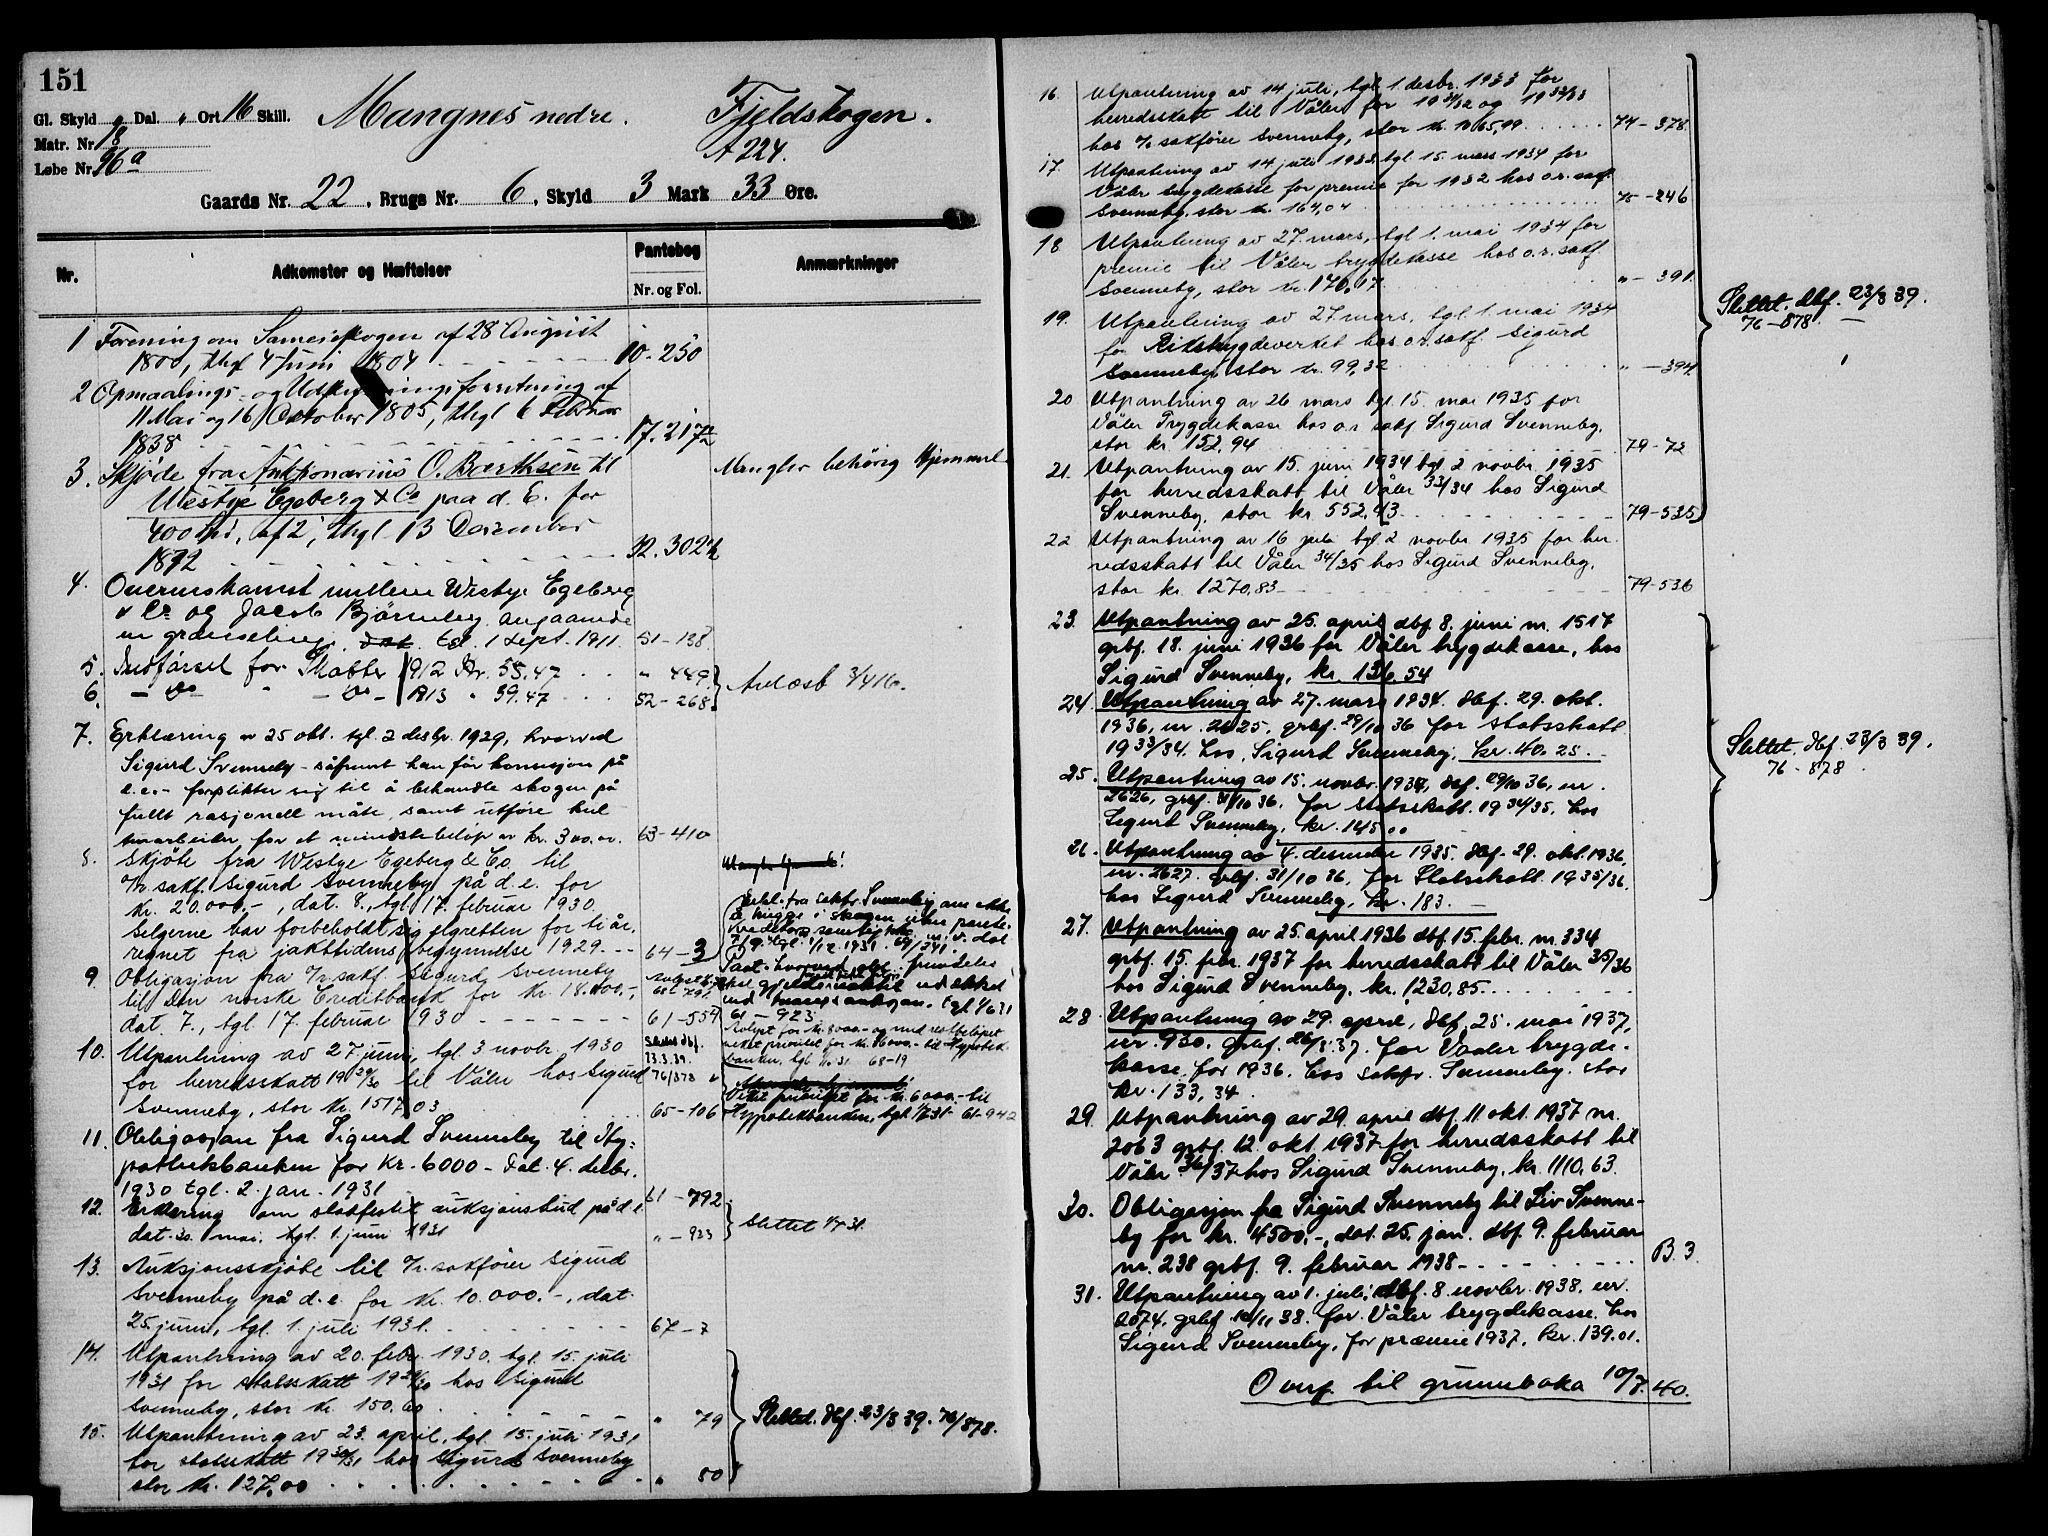 151
Gl. Skyld " Dal. " Ort 16 Skill. Mangnes nedre. Fjeldskogen.
Matr. Nr. 18 A 224.
Løbe Nr. 96a
Gaards Nr. 22, Brugs Nr. 6, Skyld 3 Mark 33 Øre.
Nr. Adkomster og Hæftelser Pantebog Nr. og Fol. Anmærkninger
1 Forening om Sameieskogen af 28 August
1800, thgl 4 Juni 1804 10-250
2 Opmaalings- og Udskiftningsforretning af
11 Mai og 16 October 1805, thgl 6 Februar
1838 17.217
3. Skjøde fra Auktionarius O. Baerthsen til Mangler behørig Hjemmel
Westye Egeberg & Co paa d. E. for
400 Spd, af 2, thgl 13 December
1872 22.302
4. Overenskomst mellem Westye Egeberg
& Co og Jacob Bjørneby angaaende
en grænselinje, dat. tgl. 1 sept. 1911. 51-138
5. Indførsel for Skatter 1912 Kr. 55.47 " 449
6. - Do - " - Do - 1913 " 59.47 52-268 Avlæst 3/4 16.
7. Erklæring av 25 okt. tgl. 2 desbr. 1929, hvorved
Sigurd Svenneby - såfremt han får konsesjon på
d.e. - forplikter sig til å behandle skogen på
fullt rasjonell måte, samt utføre kul-
turarbeider for et mindstebeløp av kr. 300,00. 63-410
8. Skjøte fra Westye Egeberg & Co. til
o.r. sakf. Sigurd Svenneby på d.e. for
kr. 20.000.-, dat. 8., tgl. 17. februar 1930
Selgerne har forbeholdt sig elgretten for ti år,
regnet fra jakttidens begynnelse 1929. 64-3
9 Obligasjon fra o.r. sakf. Sigurd Svenneby
til Den norske Creditbank for kr. 18.000.-,
dat. 7., tgl. 17. februar 1930 61-554
10. Utpantning av 27 juni, tgl. 3 novbr. 1930 Slettet dbf. 23.3.39.
for herredsskatt 1929/30 til Våler hos Sigurd 76/878
Svenneby, stor kr. 1517,03 65-106
Viket prioritet for kr. 6000.- til
Hypotekbanken, tgl. 2/1 31 61-942
11. Obligasjon fra Sigurd Svenneby til Hy-
potekbanken for kr. 6000 - dat. 4. desbr.
1930 tgl. 2. jan. 1931 61-792
12. Erklæring om stadfestet auksjonsbud på d.e.
dat. 30. mai, tgl. 1. juni 1931 " - 923
13. Auksjonsskjøte til o.r. sakfører Sigurd
Svenneby på d.e. for kr. 10.000.-, dat.
25. juni, tgl. 1. juli 1931. 67-7
14. Utpantning av 20. febr. 1930. tgl. 15. juli
1931 for statsskatt 1929/30 hos Sigurd
Svenneby, stor kr. 150.60. " 79 Slettet. dbf. 23/3 39. 76/878.
15. Utpantning av 23. april, tgl. 15. juli 1931
for statsskatt 1930/31 hos Sigurd Svenneby
stor kr. 127,00 " 80
16. Utpantning av 14 juli, tgl. 1. desbr. 1933 for
herredsskatt til Våler for 1931/32 og 1932/33
hos o.r. sakfører Svenneby, stor kr. 1065,99 74-378
17. Utpantning av 14 juli 1933, tgl. 15. mars 1934 for
Våler trygdekasse for premie for 1932 hos o.r. sakf.
Svenneby, stor kr. 164,04 75-246
18 Utpantning av 27. mars, tgl. 1. mai 1934 for
premie til Våler trygdekasse hos o.r. sakf.
Svenneby, stor kr. 170,17. " - 391
Slettet. dbf. 23/3 39.
76-878.
19. Utpantning av 27 mars, tgl. 1. mai 1934
for Rikstrygdeverket hos o.r. sakf. Sigurd
Svenneby, stor kr. 99,32 " - 394
20 Utpantning av 26 mars tgl. 15. mai 1935 for
Våler Trygdekasse hos o.r. sakf. Sigurd Svenneby,
stor kr. 152,94 79-72
21. Utpantning av 15. juni 1934 tgl. 2 novbr. 1935
for herredsskatt til Våler 33/34 hos Sigurd
Svenneby, stor kr. 552,43 79-535
22 Utpantning av 16 juli tgl. 2 novbr 1935 for her-
redsskatt til Våler 34/35 hos Sigurd Svenneby,
stor kr. 1270,83 79-536
23. Utpantning av 25. april dbf 8. juni nr. 1517
grbf. 18. juni 1936 for Våler trygdekasse, hos
Sigurd Svenneby, kr. 136,54
24. Utpantning av 27. mars 1934. dbf. 29. okt.
1936, nr. 2625, grbf. 29/10 36 for statsskatt
1933/34. hos Sigurd Svenneby, kr. 40.25.-
Slettet. dbf. 23/3 39.
76-878.
25. Utpantning av 15. novbr. 1934, dbf. 29/10 36, nr.
2626, grbf. 31/10 36. for statsskatt. 1934/35. hos
Sigurd Svenneby, kr. 145.00
26. Utpantning av 4. desember 1935. dbf. 29. okt. 1936.
nr. 2627. grbf. 31/10 36. for Statsskatt. 1935/36.
hos Sigurd Svenneby, kr. 183.-
27. Utpantning av 25. april 1936 dbf 15. febr. nr. 334
grbf. 15. febr. 1937 for herredsskatt til Våler 35/36
hos Sigurd Svenneby, kr. 1230,85.
28 Utpantning av 29. april, dbf. 25. mai 1937,
nr. 930, grbf. 26/5 37. for Vaaler trygde-
kasse for 1936. hos sakfr. Svenneby. stor
kr. 133,34.
29. Utpantning av 29. april dbf. 11 okt. 1937 nr.
2063 grbf. 12. okt. 1937 for herredsskatt til
Våler 36/37 hos Sigurd Svenneby, kr. 1110,63.
30. Obligasjon fra Sigurd Svenneby til Siv Svenne-
by for kr. 4500.-, dat. 25. jan. dbf. 9. februar
nr. 238 grbf. 9. februar 1938 B. 3.
31. Utpantning av 1. juli, dbf. 8. novbr. 1938, nr.
2074. grbf 10/11 38. for Våler trygdekasse hos
Sigurd Svenneby, for præmie 1937, kr. 139.01.
Overf. til grunnboka 10/7. 40.